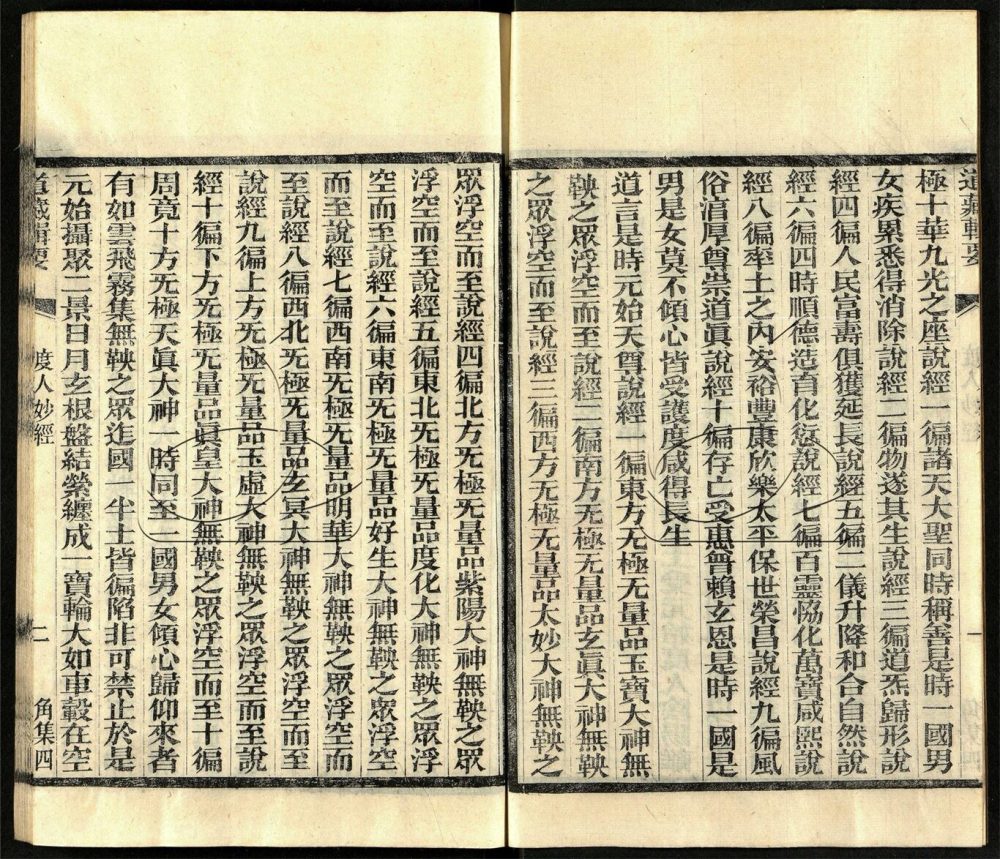 道藏輯要
極十華九光之座說經一徧諸天大聖同時稱善是時一國男
女疾累悉得消除說經二徧物遂其生說經三徧道炁歸形說
經四徧人民富壽俱獲延長說經五徧二儀升降和合自然說
經六徧四時順德造育化愆說經七徧百靈恊化萬寶咸熙說
經八徧率土之內安裕豐康欣樂太平保世榮昌說經九徧風
俗淯厚尊崇道眞說經十徧存亡受惠曾賴玄恩是時一國是
男是女莫不傾心皆受護度咸得長生
道言是時元始天尊說經一徧東方无極无量品玉寶大神無
鞅之眾浮空而至說經二徧南方无極无量品玄眞大神無鞅
之眾浮空而至說經三徧西方无極无量品太妙大神無鞅之
眾浮空而至說經四徧北方无極无量品紫陽大神無鞅之眾
浮空而至說經五徧東北无極无量品度化大神無鞅之眾浮
空而至說經六徧東南无極无量品好生大神無鞅之眾浮空
而至說經七徧西南无極无量品明華大神無鞅之眾浮空而
至說經八徧西北无極无量品玄冥大神無鞅之眾浮空而至
說經九徧上方无極无量品玉虛大神無鞅之眾浮空而至說
經十徧下方无極无量品眞皇大神無鞅之眾浮空而至十徧
周竟十方无極天眞大神一時同至一國男女傾心歸仰來者
有如雲飛霧集無鞅之眾迮國一半土皆徧陷非可禁止於是
元始攝聚二景日月玄根盤結縈纏成一寶輪大如車轂在空
道藏輯要 度人妙經 二 角集四